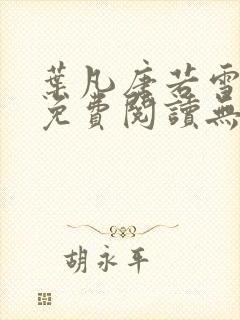 葉凡唐若雪
免費閱讀無
胡永平